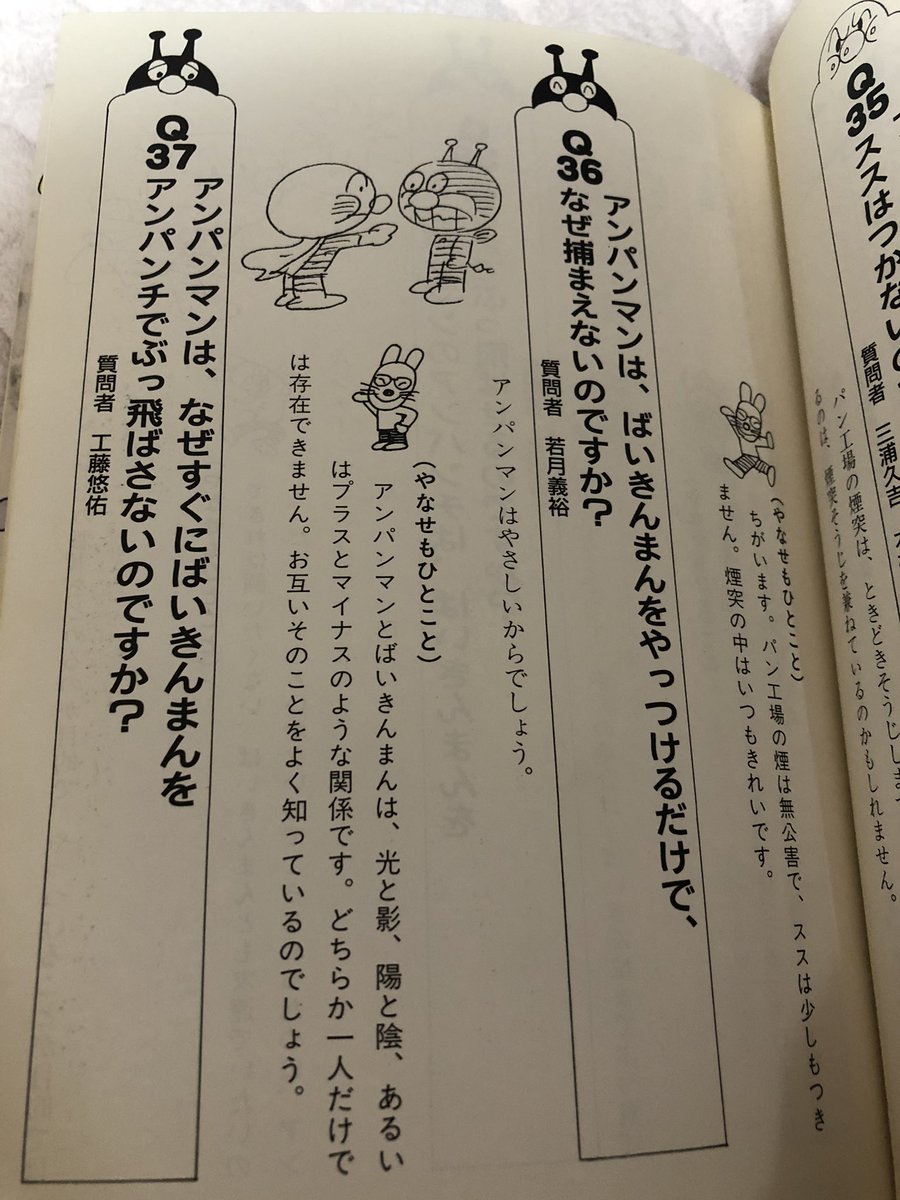 Q35
ススはつかないの
質問者 三浦久吉
パン工場の煙突は、ときどきそうじしま
るのは、煙突そうじを兼ねているのかもしれません。
(やなせもひとこと)
ちがいます。パン工場の煙は無公害で、ススは少しもつき
ません。煙突の中はいつもきれいです。
Q36
アンパンマンは、ばいきんまんをやっつけるだけで、
なぜ捕まえないのですか?
質問者 若月義裕
アンパンマンはやさしいからでしょう。
(やなせもひとこと)
アンパンマンとばいきんまんは、光と影、陽と陰、あるい
はプラスとマイナスのような関係です。どちらか一人だけで
は存在できません。お互いそのことをよく知っているのでしょう。
Q37
アンパンマンは、なぜすぐにばいきんまんを
アンパンチでぶっ飛ばさないのですか?
質問者 工藤悠佑